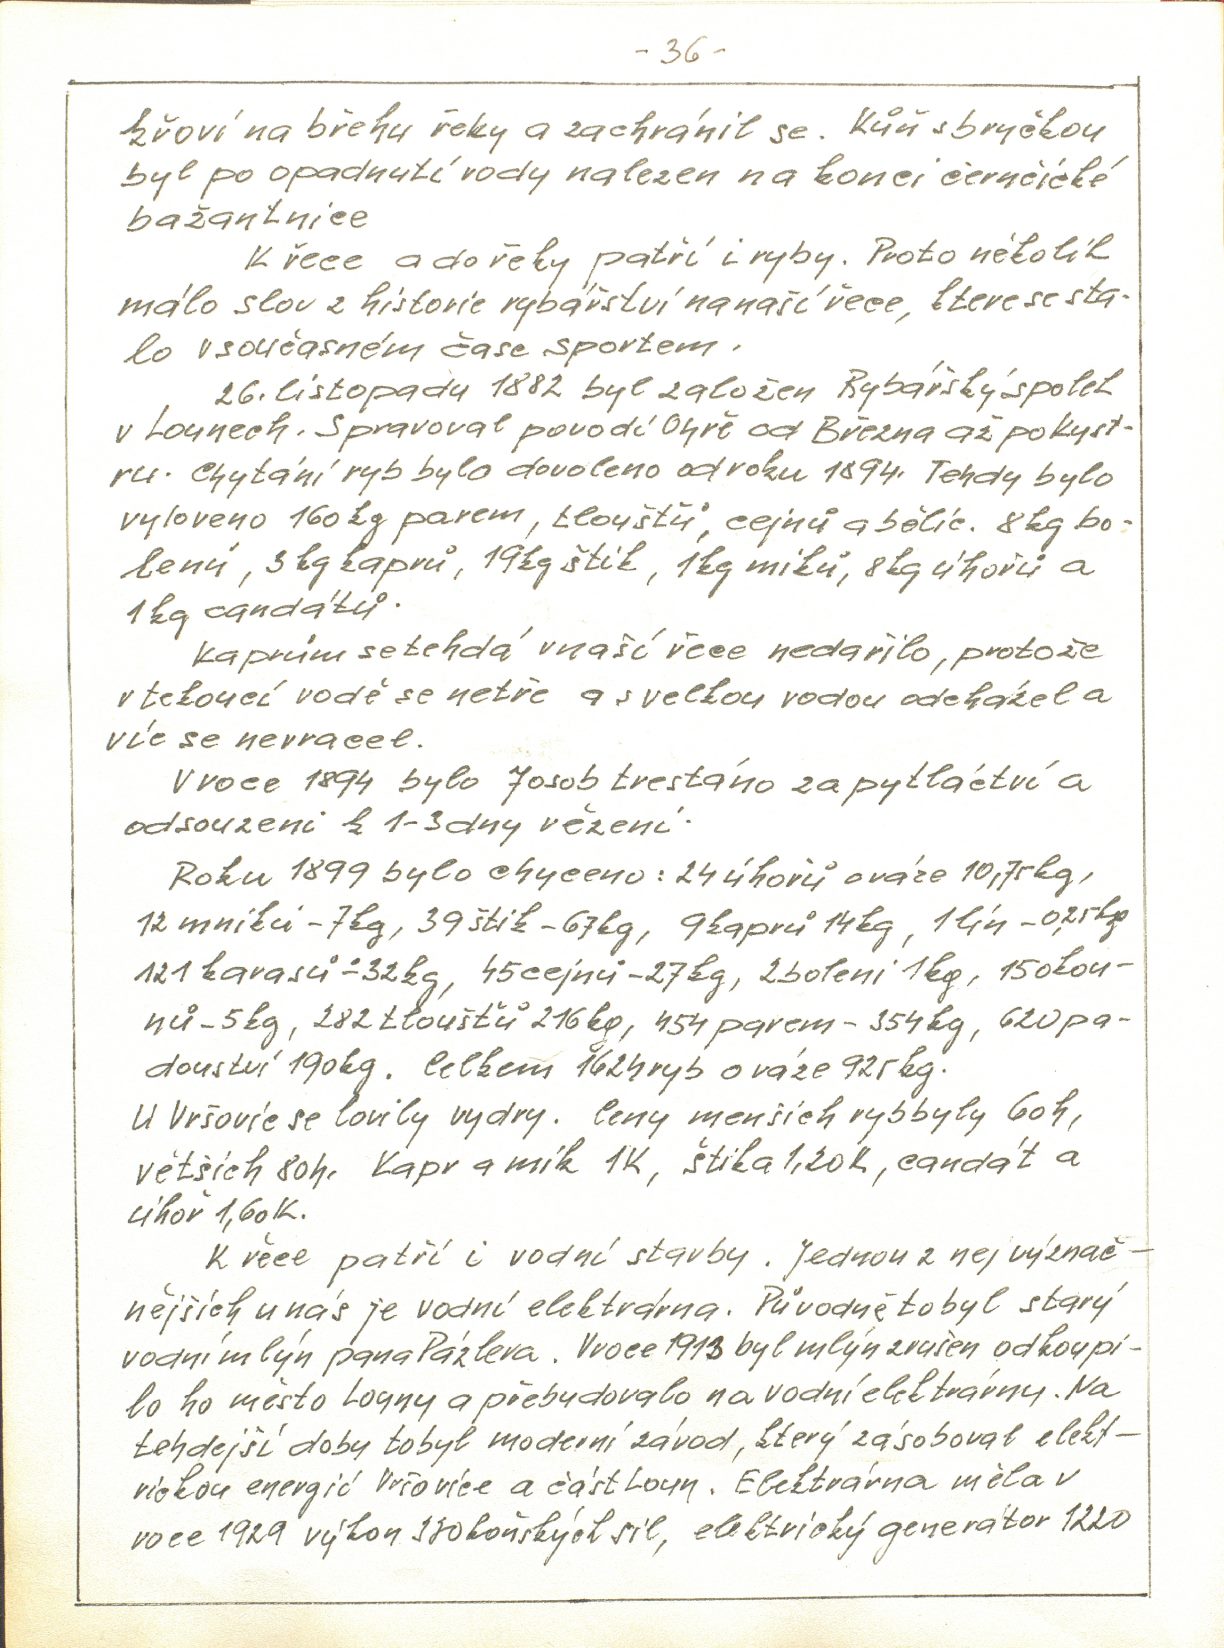 - 36 -
křoví na břehu řeky a zachránil se. Kůň s bryčkou
byl po opadnutí vody nalezen na konci černčické
bažantnice
K řece a do řeky patří i ryby. Proto několik
málo slov z historie rybářství na naší řece, ktere se sta-
lo v současném čase sportem.
26. listopadu 1882 byl založen Rybářský spolek
v Lounech. Spravoval povodí Ohře od Března až po Kyst-
ru. Chytání ryb bylo dovoleno od roku 1894. Tehdy bylo
vyloveno 160 kg parem, tlouštů, cejnů a bělic. 8 kg bo-
lenů, 3 kg kaprů, 19 kg štik, 1 kg míků, 8 kg úhořů a
1 kg candátů.
Kaprům se tehdá v naší řece nedařilo, protože
v tekoucí vodě se netře a s velkou vodou odcházel a
víc se nevracel.
V roce 1894 bylo 7 osob trestáno za pytláctví a
odsouzeni k 1-3 dny vězení.
Roku 1899 bylo chyceno: 24 úhořů o váze 10,75 kg,
12 mníků - 7 kg, 39 štik - 67 kg, 9 kaprů 14 kg, 1 lín - 0,25 kg
121 karasů - 32 kg, 45 cejnů - 27 kg, 2 boleni 1 kg, 15 okou-
nů - 5 kg, 282 tlouštů 216 kg, 454 parem - 354 kg, 620 pa-
douství 190 kg. Celkem 1624 ryb o váze 925 kg.
U Vršovic se lovily vydry. Ceny menších ryb byly 60 h,
větších 80 h. Kapr a mík 1K, štika 1,20 K, candát a
úhoř 1,60 K.
K řece patří i vodní stavby. Jednou z nej význač-
nějších u nás je vodní elektrárna. Původně to byl starý
vodní mlýn pana Pázlera. V roce 1913 byl mlýn zrušen odkoupi-
lo ho město Louny a přebudovalo na vodní elektrárnu. Na
tehdejší doby to byl moderní závod, který zásoboval elekt-
rickou energií Vršovice a část Loun. Elektrárna měla v
roce 1929 výkon 330 koňských sil, elektrický generátor 1220